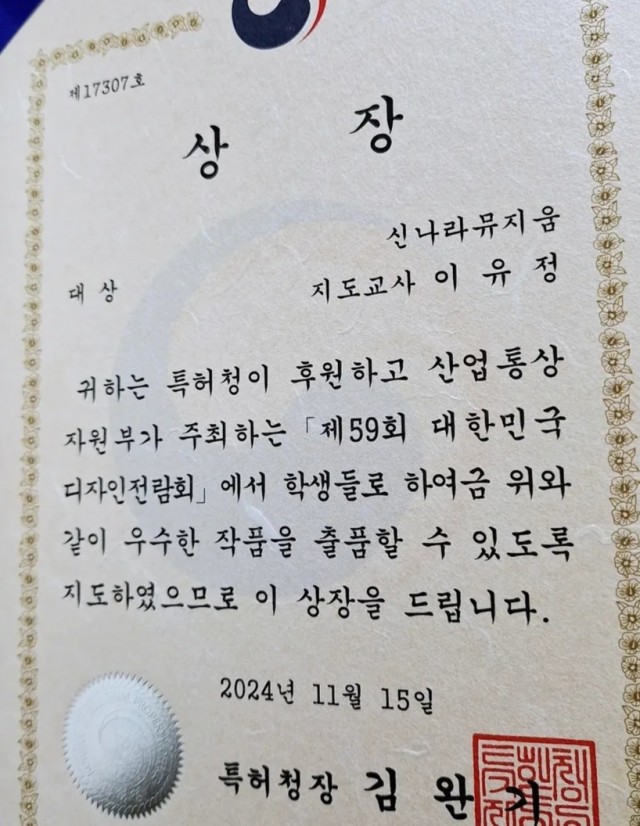 제17307호
상 장
신나라뮤지움
대 상 지도교사 이 유 정
귀하는 특허청이 후원하고 산업통상
자원부가 주최하는 「제59회 대한민국
디자인전람회」에서 학생들로 하여금 위와
같이 우수한 작품을 출품할 수 있도록
지도하였으므로 이 상장을 드립니다.
2024년 11월 15일
특허청장 김 완 기